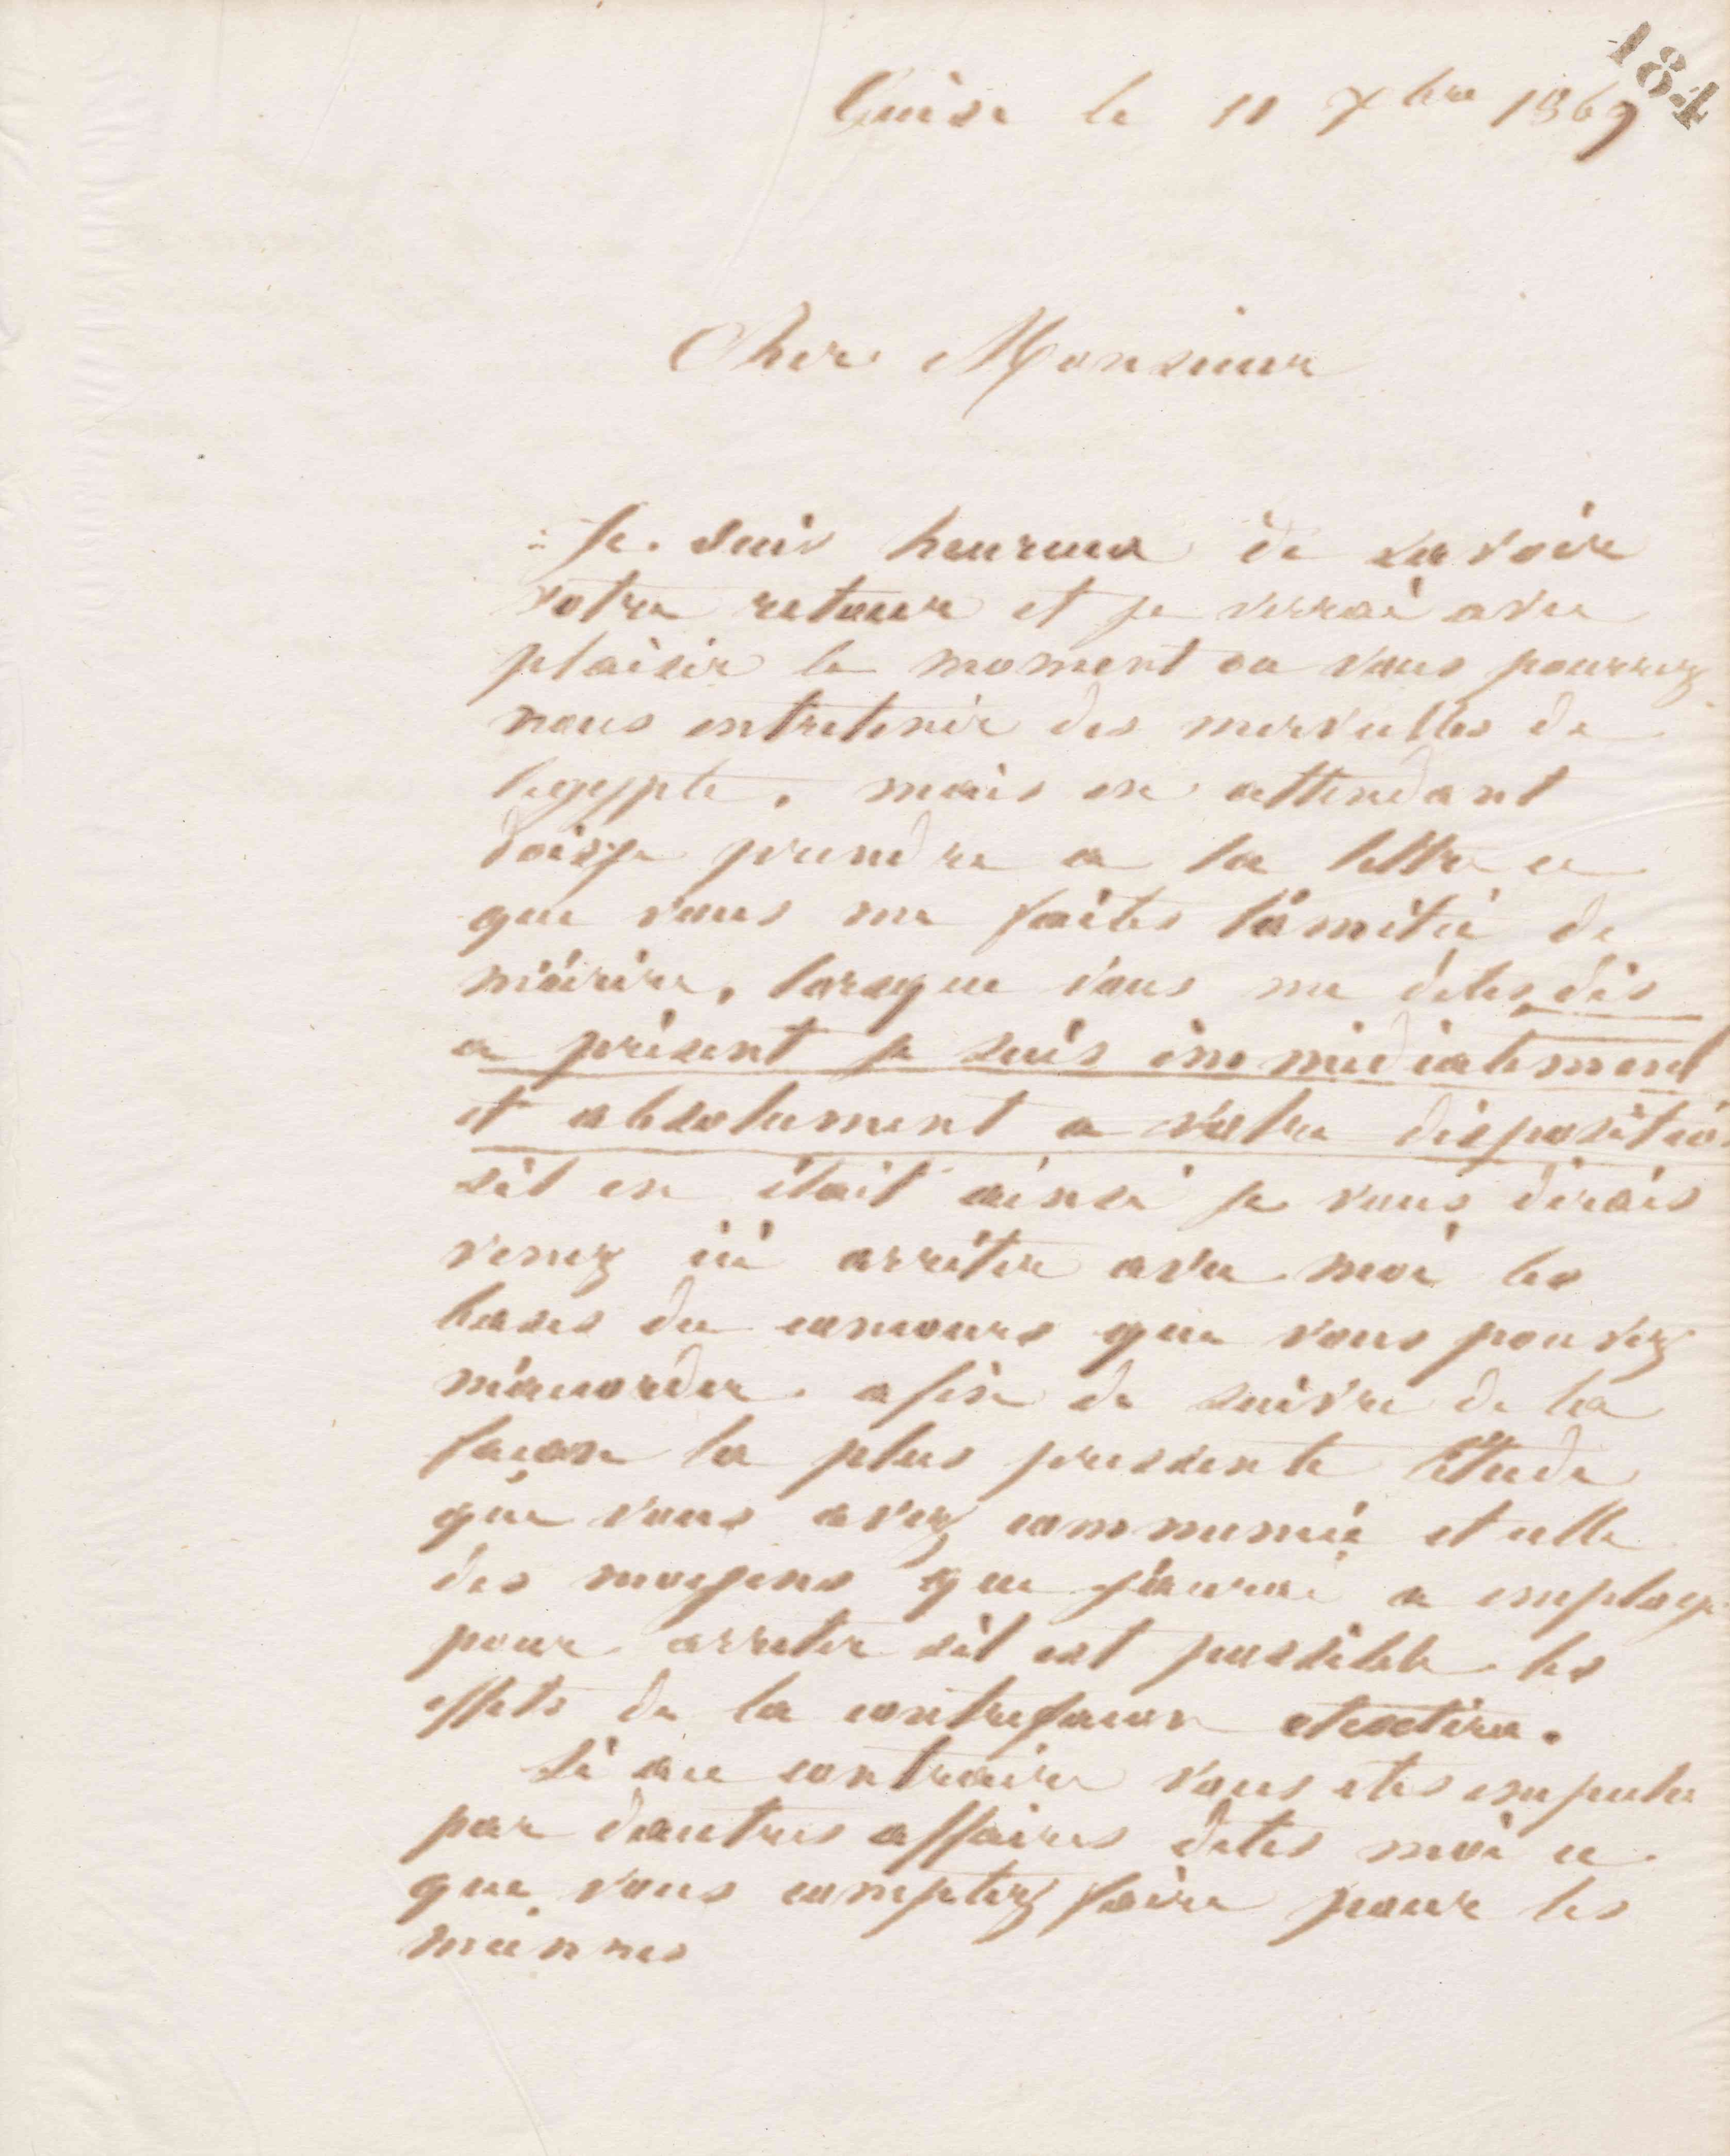 184
Guise le 11 Xbre 1869
Cher Monsieur
Je suis heureux de savoir
votre retour et je verrai avec
plaisir le moment ou vous pourrez
nous entretenir des merveilles de
legypte. mais en attendant
doisje prendre a la lettre ce
que vous me faites l'amitié de
m'écrire, lorsque vous me dites, dès
a présent je suis immédiatement
et absolument a votre disposition
sil en était ainsi je vous dirais
venez ici arrêter avec moi les
bases du concours que vous pouvez
m'accorder afin de suivre de la
façon la plus pressente l'étude
que vous avez commencée et celle
des moyens que j'aurai a employer
pour arreter sil est possible les
effets de la contrefacon
Si au contraire vous etes
par dautres affaires dites moi ce
que vous comptez faire pour les
miennes